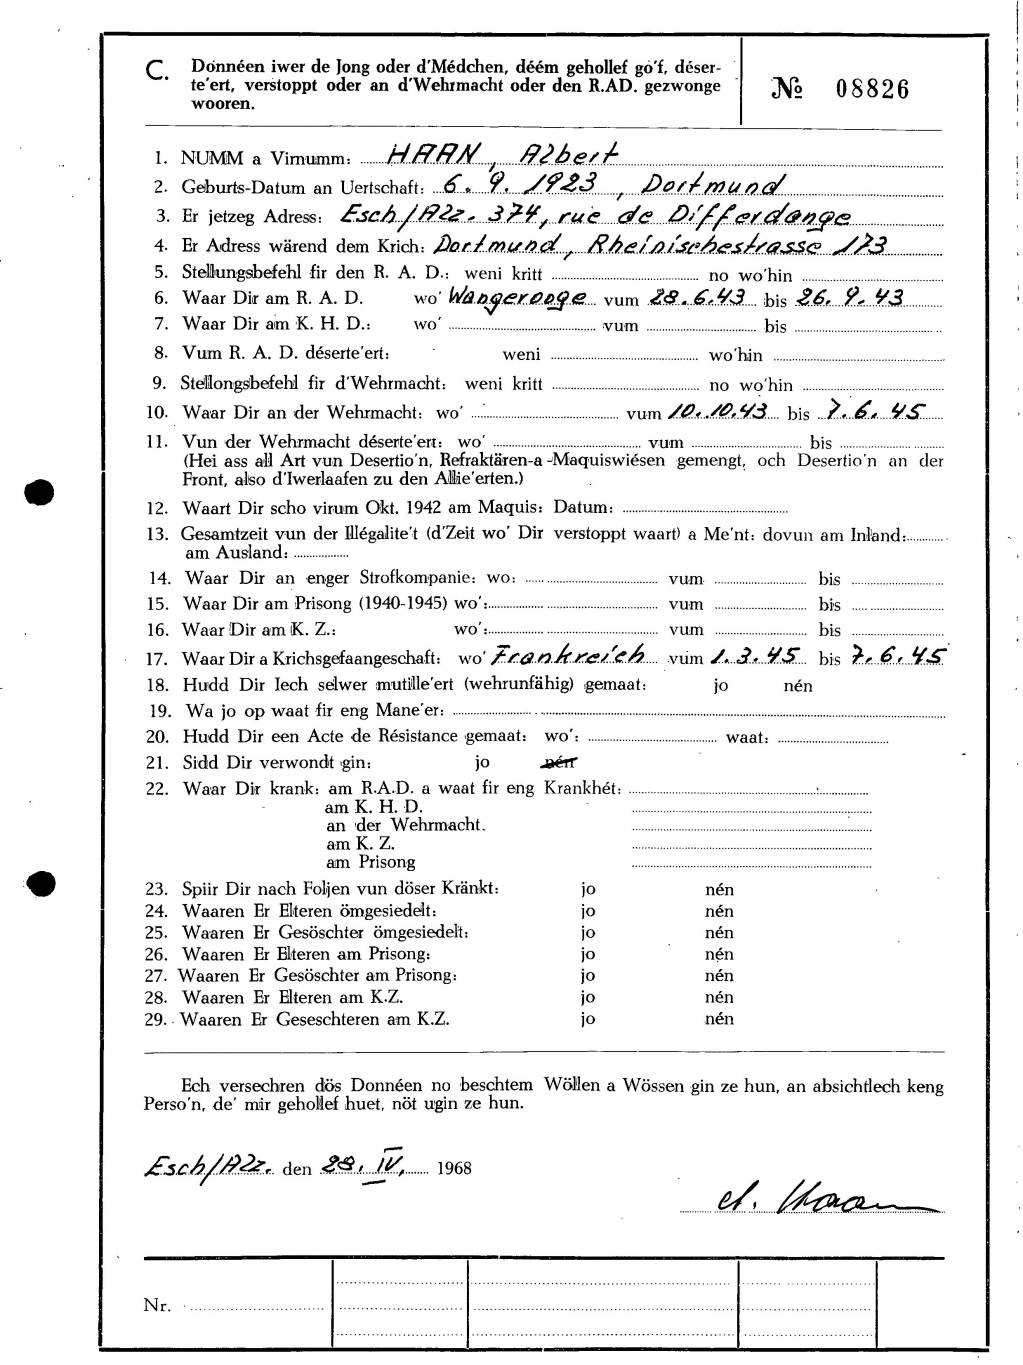 C. Donnéen iwer de Jong oder d'Médchen, déém gehollef go'f, déser-
te'ert, verstoppt oder an d'Wehrmacht oder den R.AD. gezwonge
wooren.
№ 08826
1. NUMM a Virnumm: HAAN, Albert
2. Geburts-Datum an Uertschaft: 6. 9. 1923, Dortmund
3. Er jetzeg Adress: Esch/Alz. 374, rue de Differdange
4. Er Adress wärend dem Krich: Dortmund, Rheinischestrasse 173
5. Stellungsbefehl fir den R. A. D.: weni kritt no wo'hin
6. Waar Dir am R. A. D. wo' Wangerooge vum 28.6.43 bis 26. 9. 43
7. Waar Dir am K. H. D.: wo' vum bis
8. Vum R. A. D. déserte'ert: weni wo'hin
9. Stellongsbefehl fir d'Wehrmacht: weni kritt no wo'hin
10. Waar Dir an der Wehrmacht: wo' vum 10.10.43 bis 7. 6. 45
11. Vun der Wehrmacht déserte'ert: wo' vum bis
(Hei ass all Art vun Desertio'n, Refraktären-a-Maquiswiésen gemengt, och Desertio'n an der
Front, also d'Iwerlaafen zu den Allie'erten.)
12. Waart Dir scho virum Okt. 1942 am Maquis: Datum:
13. Gesamtzeit vun der Illégalite't (d'Zeit wo' Dir verstoppt waart) a Me'nt: dovun am Inland:
am Ausland:
14. Waar Dir an enger Strofkompanie: wo: vum bis
15. Waar Dir am Prisong (1940-1945) wo': vum bis
16. Waar Dir am K. Z.: wo': vum bis
17. Waar Dir a Krichsgefaangeschaft: wo' Frankreich vum 1. 3. 45 bis 7. 6. 45
18. Hudd Dir Iech selwer mutille'ert (wehrunfähig) gemaat: jo nén
19. Wa jo op waat fir eng Mane'er:
20. Hudd Dir een Acte de Résistance gemaat: wo': waat:
21. Sidd Dir verwondt gin: jo nén
22. Waar Dir krank: am R.A.D. a waat fir eng Krankhét:
am K. H. D.
an der Wehrmacht.
am K. Z.
am Prisong
23. Spiir Dir nach Foljen vun döser Kränkt: jo nén
24. Waaren Er Elteren ömgesiedelt: jo nén
25. Waaren Er Gesöschter ömgesiedelt: jo nén
26. Waaren Er Elteren am Prisong: jo nén
27. Waaren Er Gesöschter am Prisong: jo nén
28. Waaren Er Elteren am K.Z. jo nén
29. Waaren Er Geseschteren am K.Z. jo nén
Ech versechren dös Donnéen no beschtem Wöllen a Wössen gin ze hun, an absichtlech keng
Perso'n, de' mir gehollef huet, nöt ugin ze hun.
Esch/Alz. den 28. IV. 1968
A. Haan
Nr.